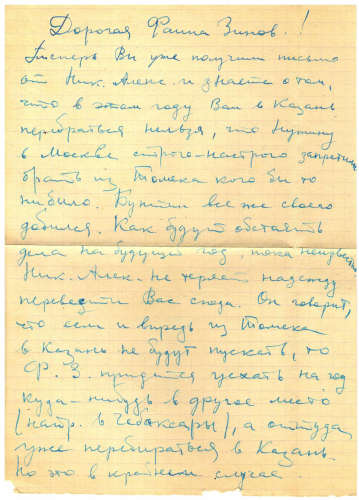 Дорогая Фаина Зинов.!
Теперь Вы уже получили письмо
от Ник. Алекс. и знаете о том,
что в этом году Вам в Казань
перебраться нельзя, что Нужину
в Москве строго-настрого запретили
брать из Томска кого бы то
нибыло. Бунтин все же своего
добился. Как будут обстоять
дела на будущий год, пока неизвестно.
Ник. Алек. не теряет надежду
перевезти Вас сюда. Он говорит,
что если и впредь из Томска
в Казань не будут пускать, то
Ф. З. придется уехать на год
куда-нибудь в другое место
(напр. в Чебоксары), а оттуда
уже перебираться в Казань.
Но это в крайнем случае